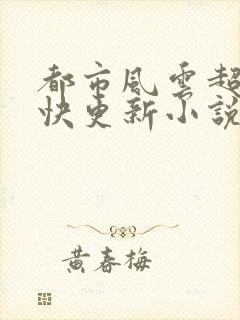 都市風雲超
快更新小說
黃春梅